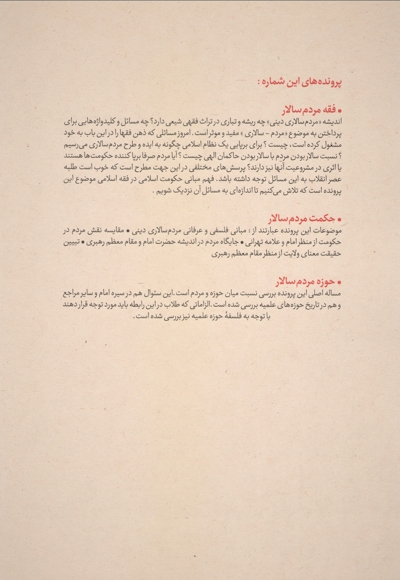 پرونده‌های این شماره :
• فقه مردم‌سالار
اندیشه «مردم‌سالاری دینی» چه ریشه و تباری در تراث فقهی شیعی دارد؟ چه مسائل و کلیدواژه‌هایی برای
پرداختن به موضوع «مردم - سالاری» مفید و موثر است. امروز مسائلی که ذهن فقها را در این باب به خود
مشغول کرده است، چیست ؟ برای برپایی یک نظام اسلامی چگونه به ایده و طرح مردم‌سالاری می‌رسیم
؟ نسبت سالار بودن مردم با سالار بودن حاکمان الهی چیست ؟ آیا مردم صرفا برپا کننده حکومت‌ها هستند
یا اثری در مشروعیت آنها نیز دارند؟ پرسش‌های مختلفی در این جهت مطرح است که خوب است طلبه
عصر انقلاب به این مسائل توجه داشته باشد. فهم مبانی حکومت اسلامی در فقه اسلامی موضوع این
پرونده است که تلاش می‌کنیم تا اندازه‌ای به مسائل آن نزدیک شویم .
• حکمت مردم‌سالار
موضوعات این پرونده عبارتند از : مبانی فلسفی و عرفانی مردم‌سالاری دینی • مقایسه نقش مردم در
حکومت از منظر امام و علامه تهرانی • جایگاه مردم در اندیشه حضرت امام و مقام معظم رهبری • تبیین
حقیقت معنای ولایت از منظر مقام معظم رهبری
• حوزه مردم‌سالار
مساله اصلی این پرونده بررسی نسبت میان حوزه و مردم است. این سئوال هم در سیره امام و سایر مراجع
و هم در تاریخ حوزه‌های علمیه بررسی شده است. الزاماتی که طلاب در این رابطه باید مورد توجه قرار دهند
با توجه به فلسفهٔ حوزه علمیه نیز بررسی شده است .